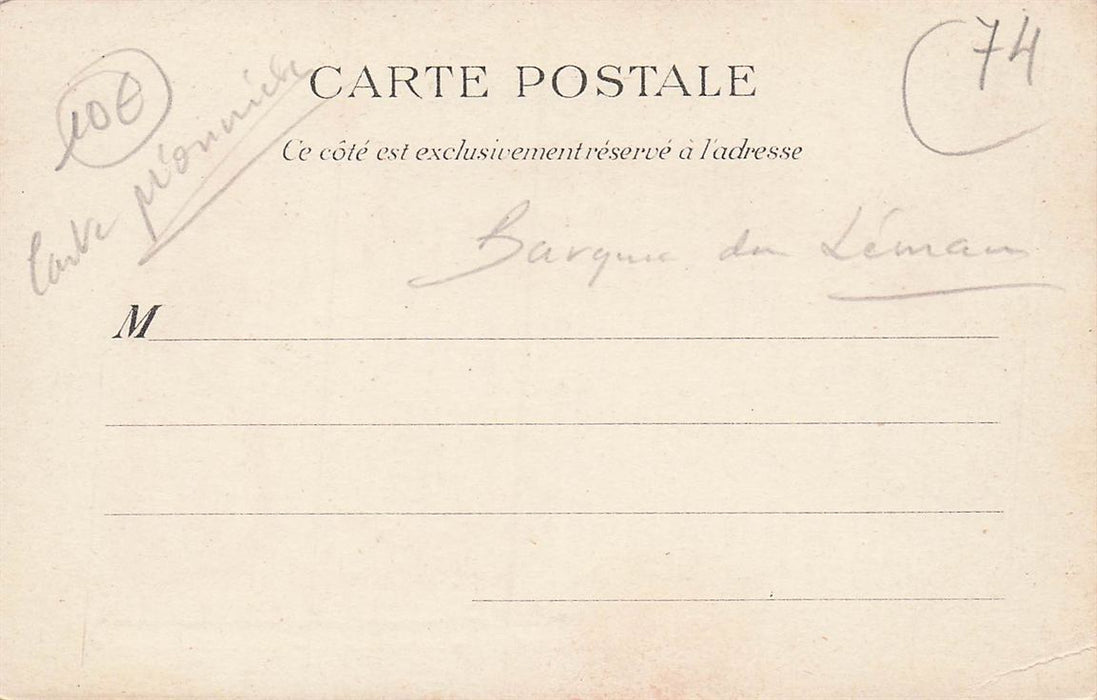 10€
Carte pionnière
74
CARTE POSTALE
Ce côté est exclusivement réservé à l'adresse
Barque du Léman
M